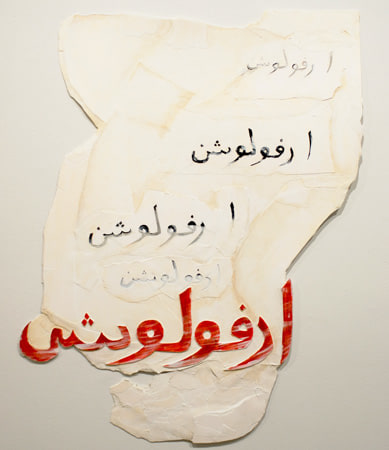 ا رفولوشن
ا رفولوشن
ا رفولوشن
ا رفولوشن
ا رفولوشن